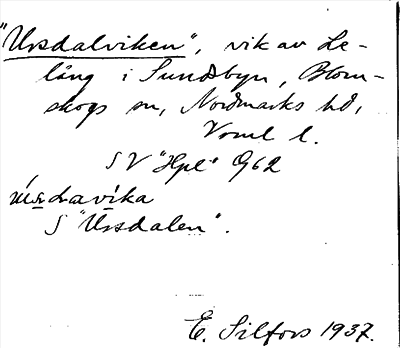 "Ursdalviken", vik av Le-
lång i Sundsbyn, Blom-
skogs sn, Nordmarks hd,
Vrml l.
SV "Hpl" Q62
úsdavika
S "Ursdalen".
E. Silfors 1937.